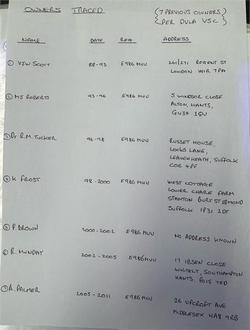 OWNERS TRACED (7 PREVIOUS OWNERS)
PER DVLA V5C
NAME DATE REG ADDRESS
① VJW SCOTT 88-93 E986 MUU REGENT ST
LONDON W1R 7PA
② MS ROBERTS 93-96 E986 MUU 5 WINDSOR CLOSE
ALTON, HANTS,
③ R.M. TUCKER 96-98 E986 MUU RUSSET HOUSE,
LOCKS LANE,
LEAVENHEATH, SUFFOLK
CO6 4PF
④ K FROST 98-2000 E986 MUU WEST COTTAGE
LOWER CHARE FARM
STANTON BURY ST EDMUND
SUFFOLK IP31 2DF
⑤ P BROWN 2000-2002 E986 MUU NO ADDRESS KNOWN
⑥ R. MUNDAY 2002-2005 E986 MUU 17 IBSEN CLOSE
WHITELEY, SOUTHAMPTON
HANTS, PO15 7ED
⑦ A. PALMER 2005-2011 E986 MUU 26 UPCROFT AVE
MIDDLESEX HA8 9RB